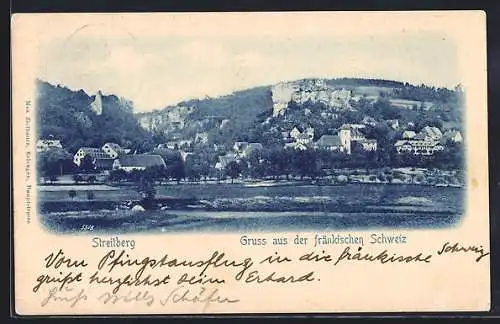 Max Zintl, Erlangen, Hauptstr.
5518
Streitberg
Gruss aus der fränkischen Schweiz
Vom Pfingstausflug in die fränkische Schweiz
grüßt herzlichst Dein Erhard.
Gruß Willy Schäfer